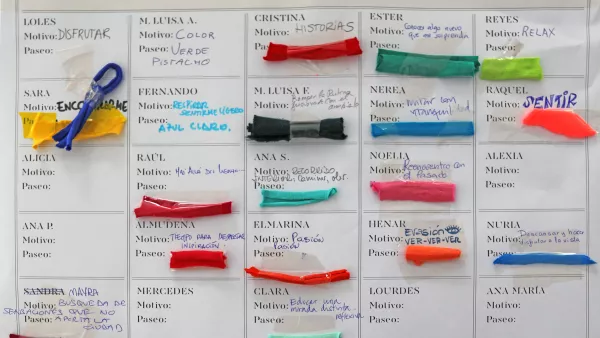 LOLES
Motivo: DISFRUTAR
Paseo:
M. LUISA A.
Motivo: COLOR
Paseo: VERDE
PISTACHO
CRISTINA
Motivo: HISTORIAS
Paseo:
ESTER
Motivo: Conocer algo nuevo
que me sorprenda
Paseo:
REYES
Motivo: RELAX
Paseo:
SARA
Motivo:
FERNANDO
Motivo: RESPIRAR
SENTIRME LIGERO
Paseo:
AZUL CLARO.
M. LUISA F.
Motivo:
NEREA
Motivo: mirar con
tranquilidad
Paseo:
RAQUEL
Motivo: SENTIR
Paseo:
ALICIA
Motivo:
Paseo:
RAÚL
Motivo:
Paseo:
ANA S.
Motivo: RECORRIDO
INTERIOR
NOELIA
Motivo: Reencuentro con
el pasado
ALEXIA
Motivo:
Paseo:
ANA P.
Motivo:
Paseo:
ALMUDENA
Motivo: TIEMPO PARA DESPERTAR
INSPIRACIÓN
Paseo:
ELMARINA
Motivo: Pasión
Pasión
HENAR
Motivo: EVASIÓN
VER-VER-VER
Paseo:
NURIA
Motivo: Descansar y hacer
Paseo:
SANDRA MAYRA
Motivo: BÚSQUEDA DE
SENSACIONES QUE NO
Paseo: APORTA LA
CIUDAD
MERCEDES
Motivo:
Paseo:
CLARA
Motivo: Educar una
mirada distinta
Paseo: reflexiva
LOURDES
Motivo:
Paseo:
ANA MARÍA
Motivo:
Paseo: